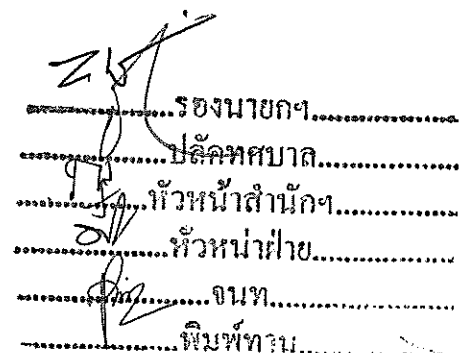 รองนายกฯ
ปลัดทศบาล
หัวหน้าสำนักฯ
หัวหน่าฝ่าย
จนท.
พิมพ์ทาน